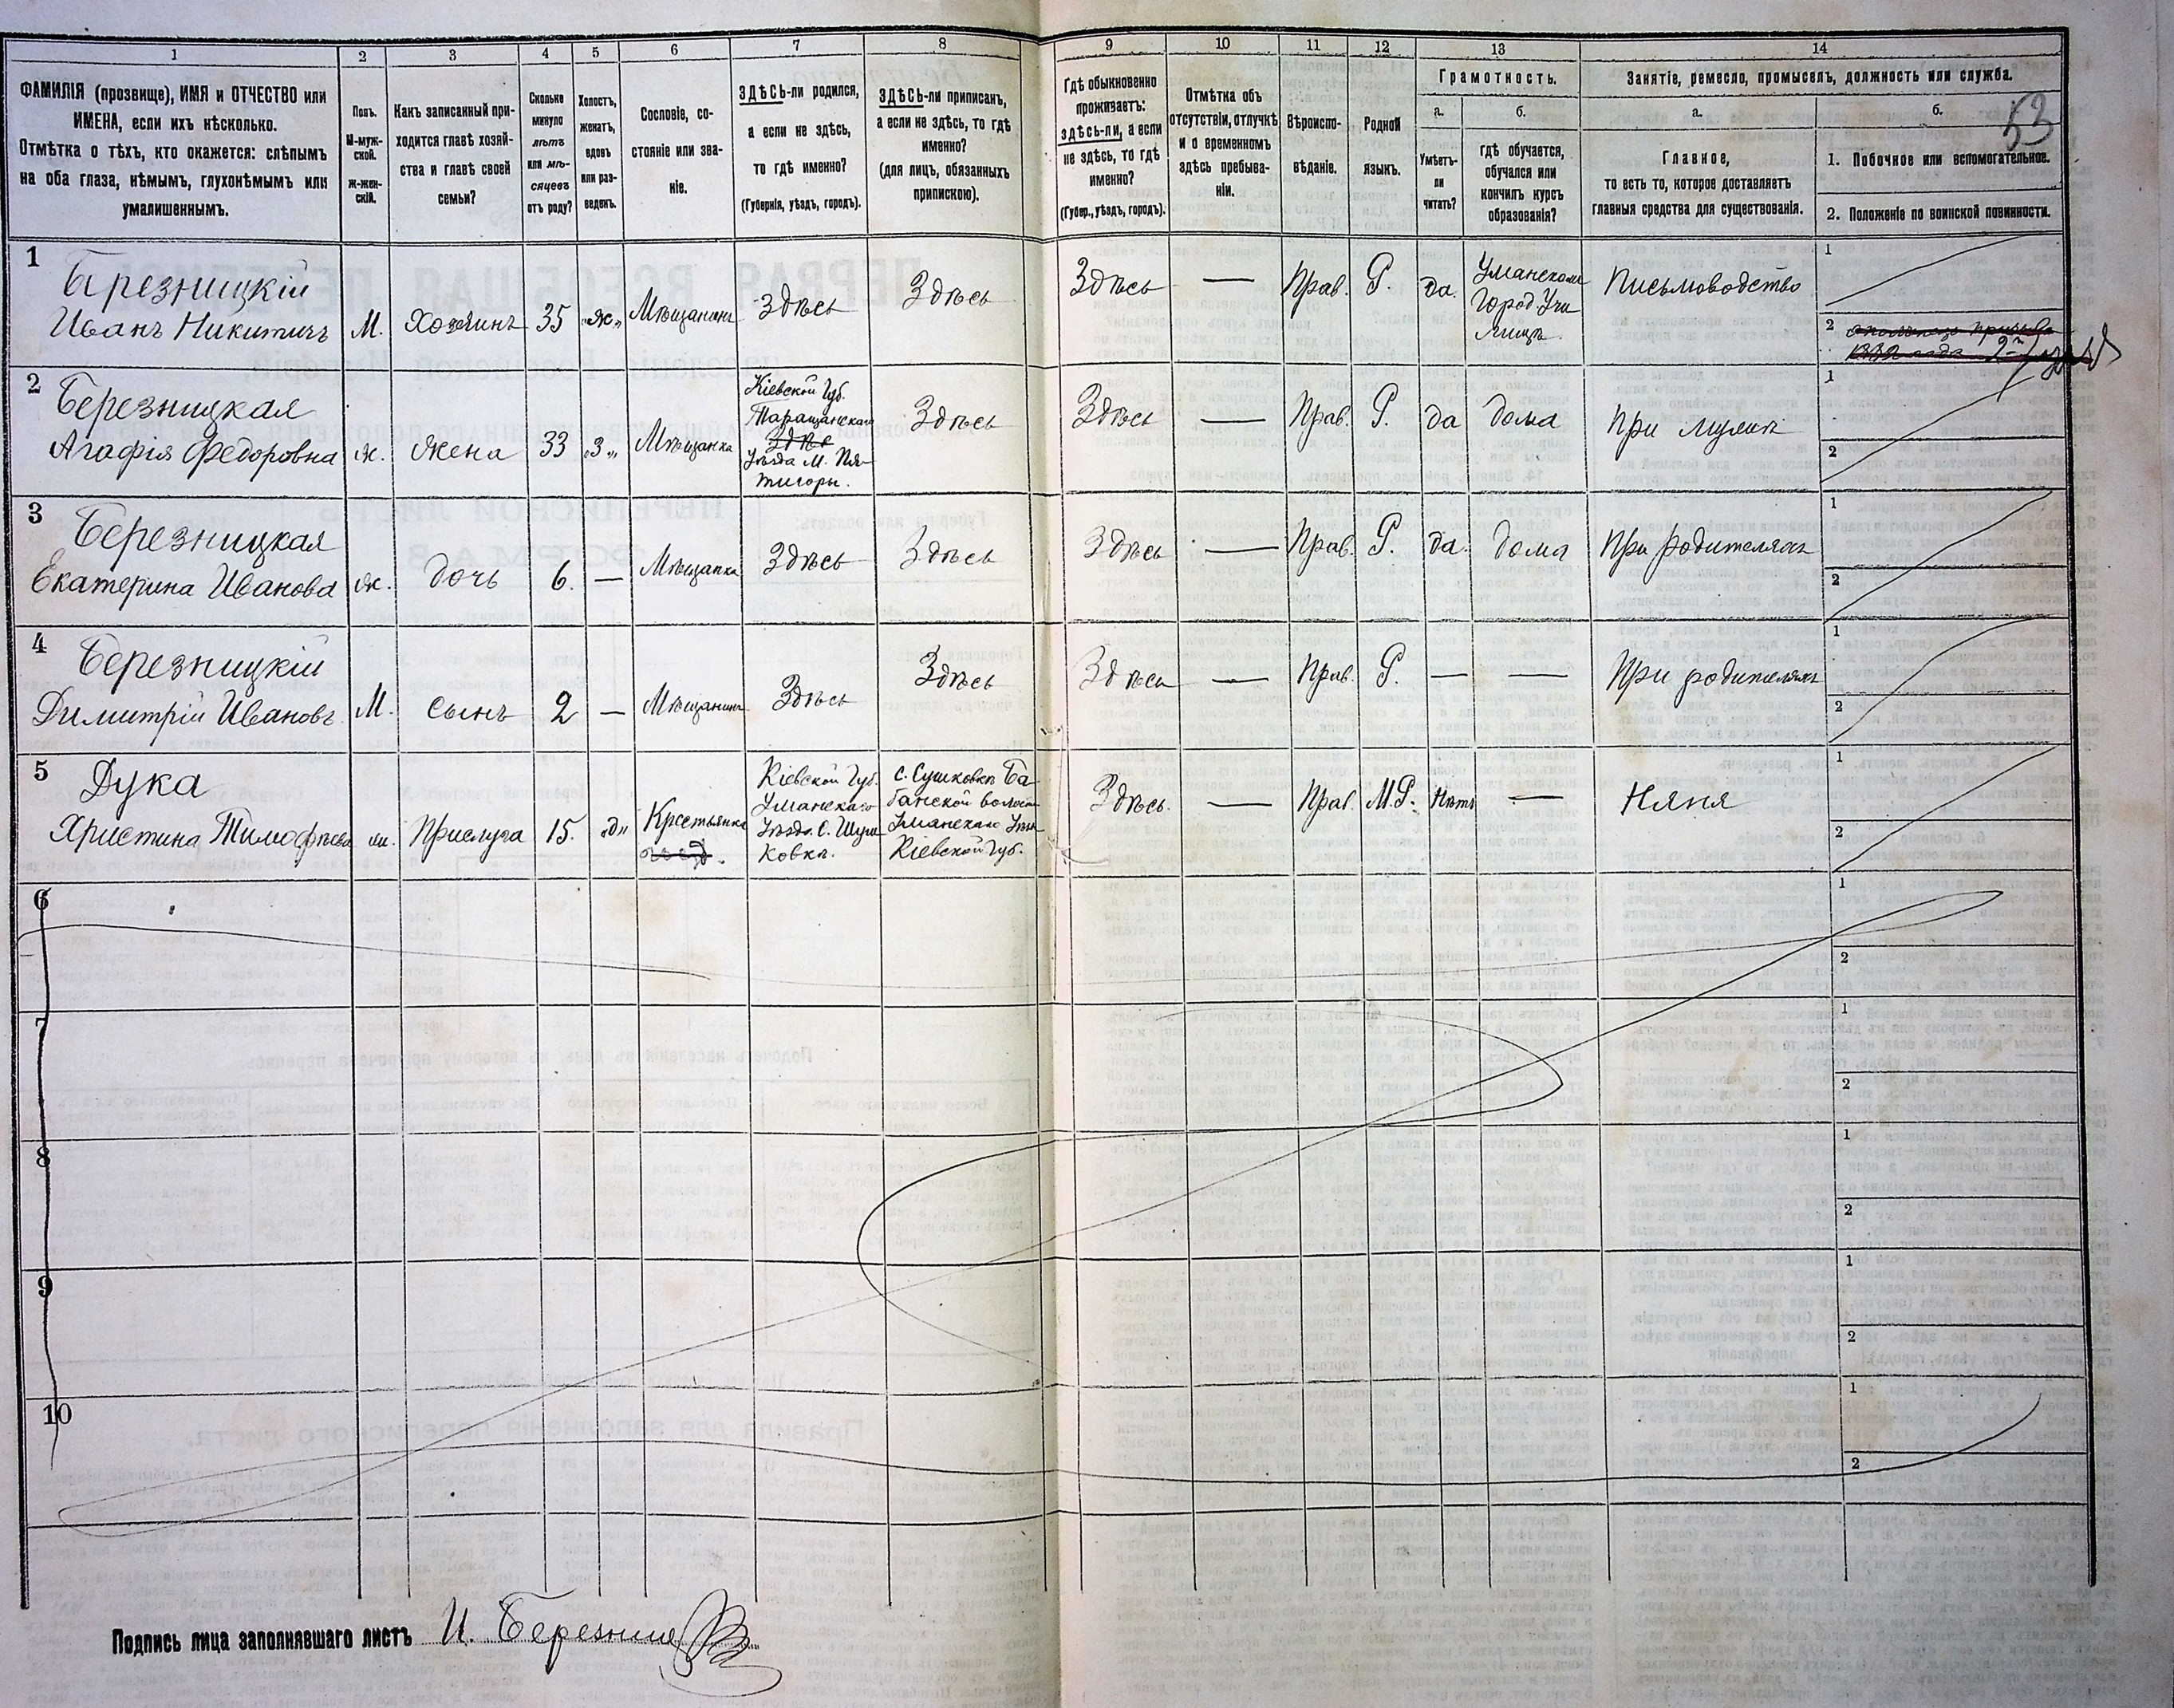 1 2 3 4 5 6 7 8 9 10 11 12 13 14
ФАМИЛІЯ (прозвище), ИМЯ и ОТЧЕСТВО или
ИМЕНА, если ихъ нѣсколько.
Отмѣтка о тѣхъ, кто окажется: слѣпымъ
на оба глаза, нѣмымъ, глухонѣмымъ или
умалишеннымъ.
Полъ.
М-муж-
ской.
Ж-жен-
скій.
Какъ записанный при-
ходится главѣ хозяй-
ства и главѣ своей
семьи?
Сколько
минуло
лѣтъ
или мѣ-
сяцевъ
отъ роду?
Холостъ,
женатъ,
вдовъ
или раз-
веденъ.
Сословіе, со-
стояніе или зва-
ніе.
ЗДѢСЬ-ли родился,
а если не здѣсь,
то гдѣ именно?
(Губернія, уѣздъ, городъ).
ЗДѢСЬ-ли приписанъ,
а если не здѣсь, то гдѣ
именно?
(для лицъ, обязанныхъ
припискою).
Гдѣ обыкновенно
проживаетъ:
здѣсь-ли, а если
не здѣсь, то гдѣ
именно?
(Губер., уѣздъ, городъ).
Отмѣтка объ
отсутствіи, отлучкѣ
и о временномъ
здѣсь пребыва-
ніи.
Вѣроиспо-
вѣданіе.
Родной
языкъ.
Грамотность.
а.
Умѣетъ-
ли
читать?
б.
гдѣ обучается,
обучался или
кончилъ курсъ
образованія?
Занятіе, ремесло, промыселъ, должность или служба.
а.
Главное,
то есть то, которое доставляетъ
главныя средства для существованія.
б.
53
1. Побочное или вспомогательное.
2. Положеніе по воинской повинности.
1
Березницкій
Иванъ Никитичъ
М.
Хозяинъ
35
„ж„
Мѣщанинъ
Здѣсь
Здѣсь
Здѣсь
—
Прав.
Р.
да.
Уманском
Город. Учи
лищѣ.
Письмоводство
1
2
2
Березницкая
Агафія Федоровна
ж.
Жена
33
„З„
Мѣщанка
Кіевской Губ.
Таращанскаго
Здѣс
Уѣзда М. Пя-
тигоры.
Здѣсь
Здѣсь
—
Прав.
Р.
да
дома
При мужѣ
1
2
3
Березницкая
Екатерина Иванова
ж.
дочь
6.
—
Мѣщанка
Здѣсь
Здѣсь
Здѣсь
—
Прав.
Р.
да.
дома
При родителяхъ
1
2
4
Березницкій
Димитрій Ивановъ
М.
сынъ
2
—
Мѣщанинъ
Здѣсь
Здѣсь
Здѣсь
—
Прав.
Р.
—
—
При родителяхъ
1
2
5
Дука
Христина Тимофѣева
ж.
Прислуга
15.
„д„
Крестьянка
Кіевской Губ.
Уманскаго
Уѣзда С. Шуш
ковка.
с. Сушковка Ба-
банской волости
Уманскаго Уѣз
Кіевской Губ.
Здѣсь.
—
Прав.
М.Р.
Нѣтъ
—
Няня
1
2
6
1
2
7
1
2
8
1
2
9
1
2
10
1
2
Подпись лица заполнявшаго листъ И. Березниц